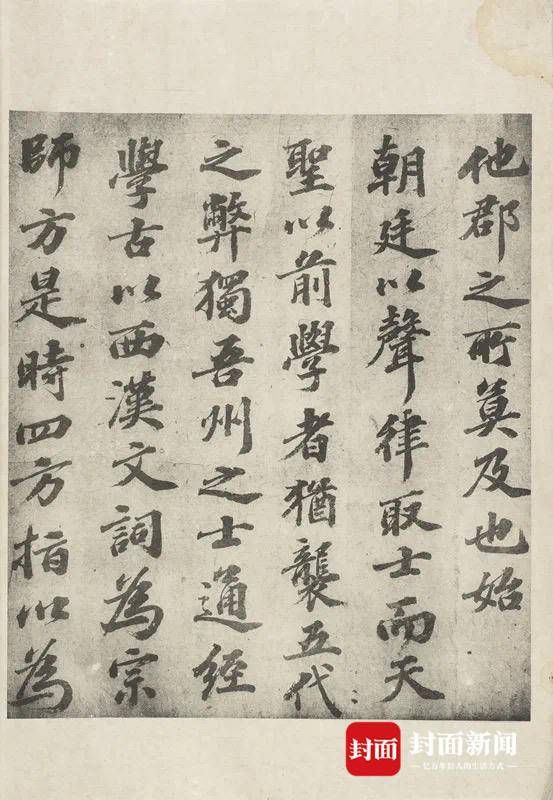 他郡之所莫及也始
朝廷以聲律取士而天
聖以前學者猶襲五代
之弊獨吾州之士通經
學古以西漢文詞為宗
師方是時四方指以為
封面
封面新闻
亿万年轻人的生活方式